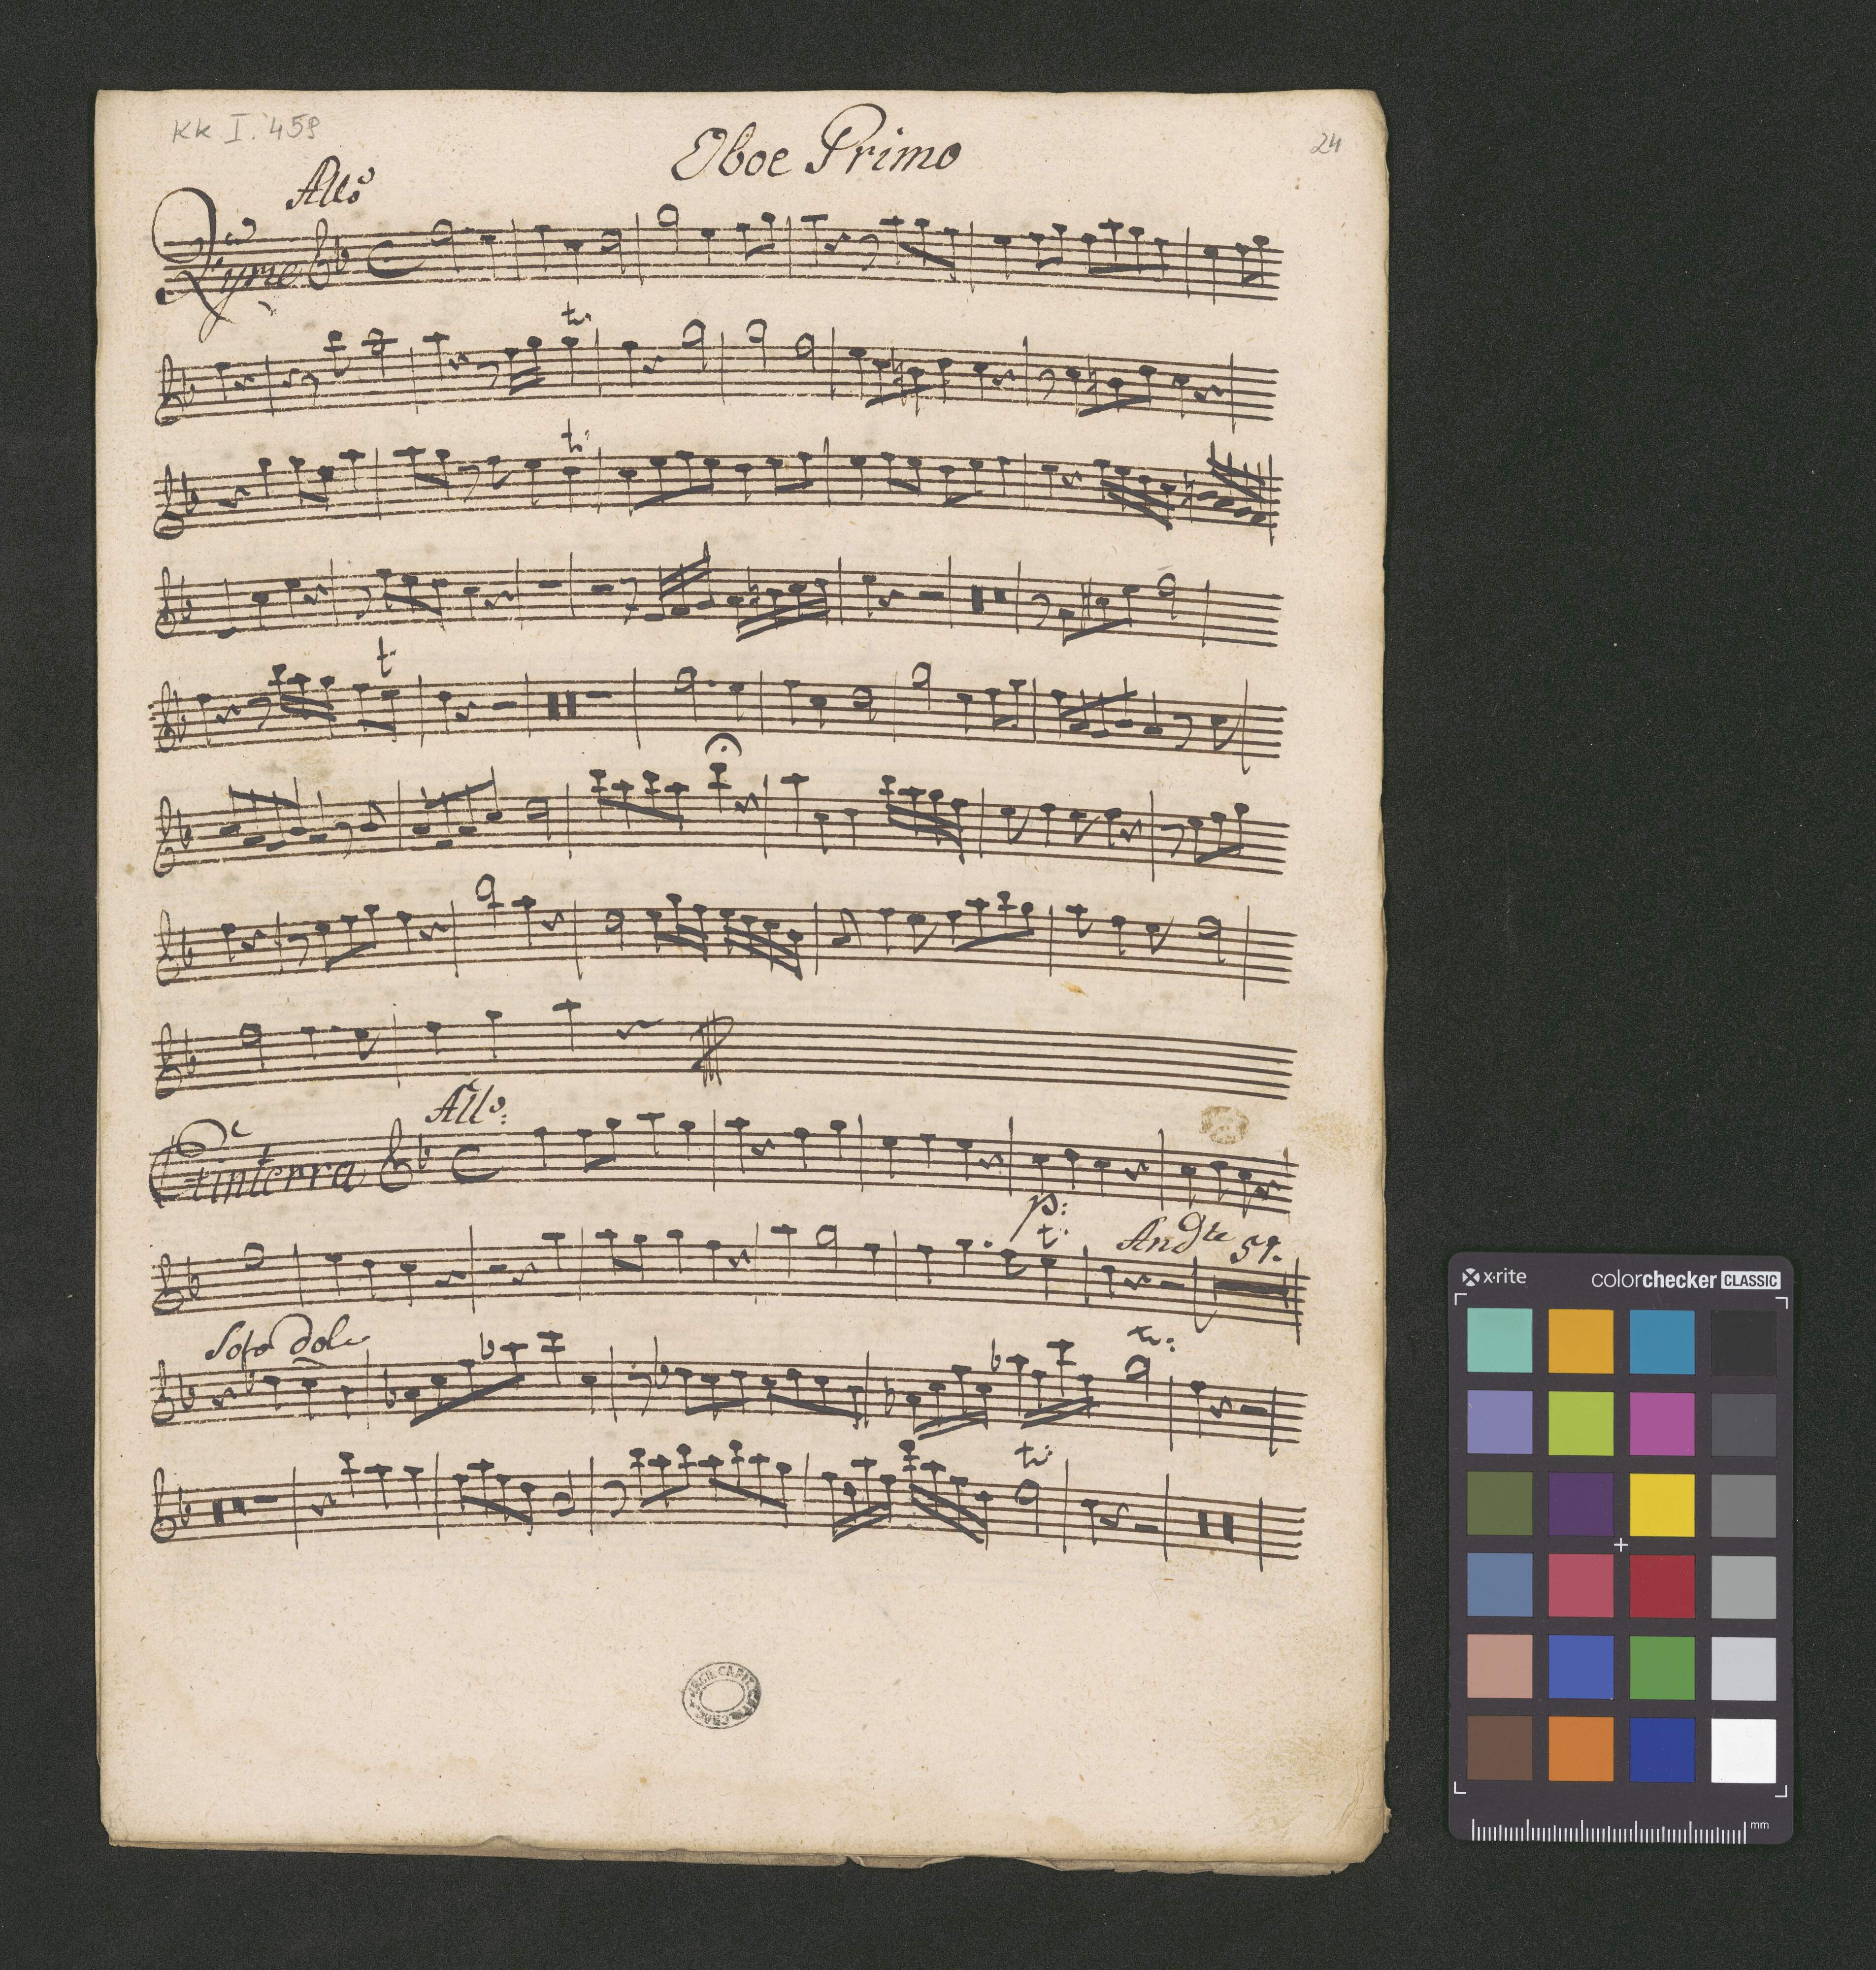 KK I. 459
Oboe Primo
24
All:o
Kyrie
tr.
t:
t.
All:o
Et in terra
p:
t:
And:te 59.
Solo dol:
tr:
tr:
ARCH. CAPIT. CRAC.
x·rite
colorchecker CLASSIC
mm